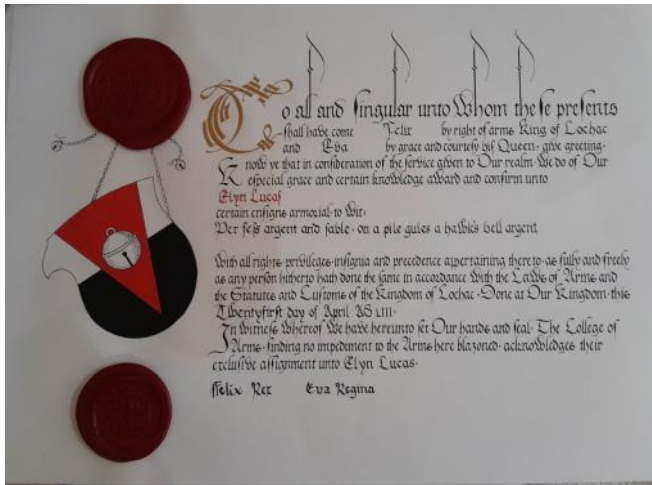 To all and singular unto Whom these presents
shall have come Felix by right of arms King of Lochac
and Eva by grace and courtesy his Queen · give greeting ·
Know ye that in consideration of the service given to Our realm · We do of Our
especial grace and certain knowledge award and confirm unto
Elyn Lucas
certain ensigns armorial · to Wit ·
Per fess argent and sable · on a pile gules a hawk's bell argent
With all rights · privileges · insignia and precedence appertaining thereto · as fully and freely
as any person hitherto hath done the same in accordance With the Laws of Arms and
the Statutes and Customs of the Kingdom of Lochac · Done at Our Kingdom · this
Twentyfirst day of April AS LIII ·
In Witness Whereof We have hereunto set Our hands and seal · The College of
Arms · finding no impediment to the Arms here blazoned · acknowledges their
exclusive assignment unto Elyn Lucas ·
Felix Rex Eva Regina